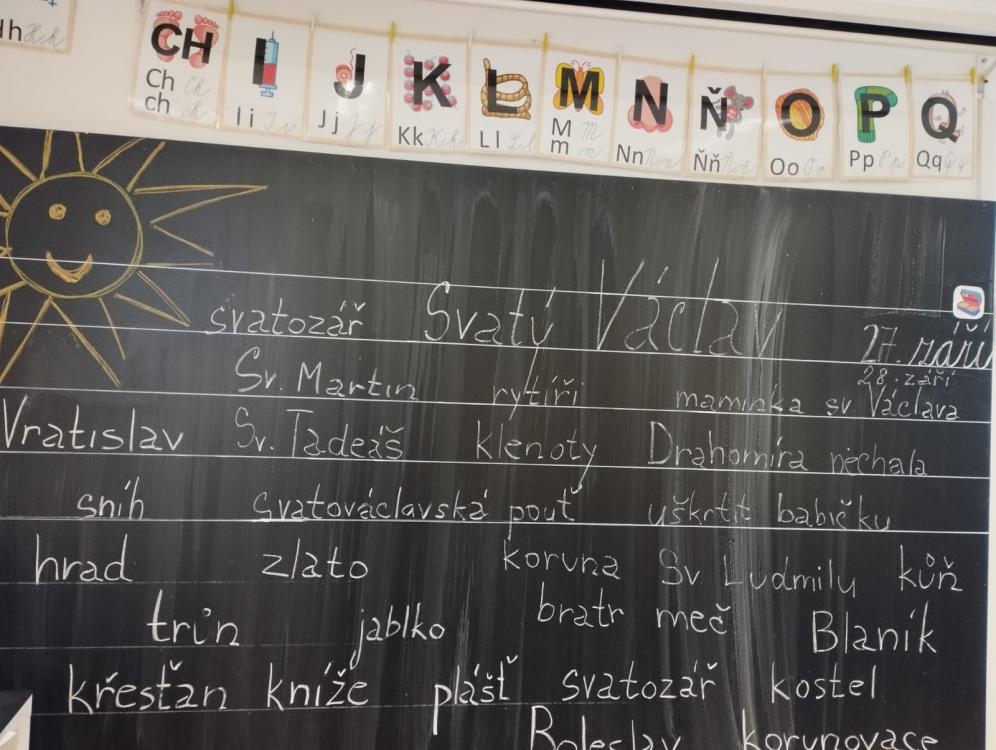 Hh Hh
CH I J K L M N Ň O P Q
Ch Ch
ch ch
Ii Ii Jj Jj Kk Kk Ll Ll M M
m m
Nn Nn Ňň Ňň Oo Oo Pp Pp Qq Qq
svatozář Svatý Václav 27. září
28. září
Sv. Martin rytíři maminka sv. Václava
Vratislav Sv. Tadeáš klenoty Drahomíra nechala
sníh svatováclavská pouť uškrtit babičku
hrad zlato koruna Sv Ludmilu kůň
trůn jablko bratr meč Blaník
křesťan kníže plášť svatozář kostel
Boleslav korunovace